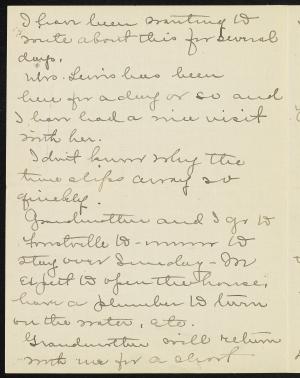 I have been wanting to
write about this for several
days.
Mrs. Lewis has been
here for a day or so and
I have had a nice visit
with her.
I don't know why the
time slips away so
quickly.
Grandmother and I go to
to-morrow to
stay over Sunday - We
expect to open the house,
have a plumber to turn
on the water, etc.
Grandmother will return
with me for a short